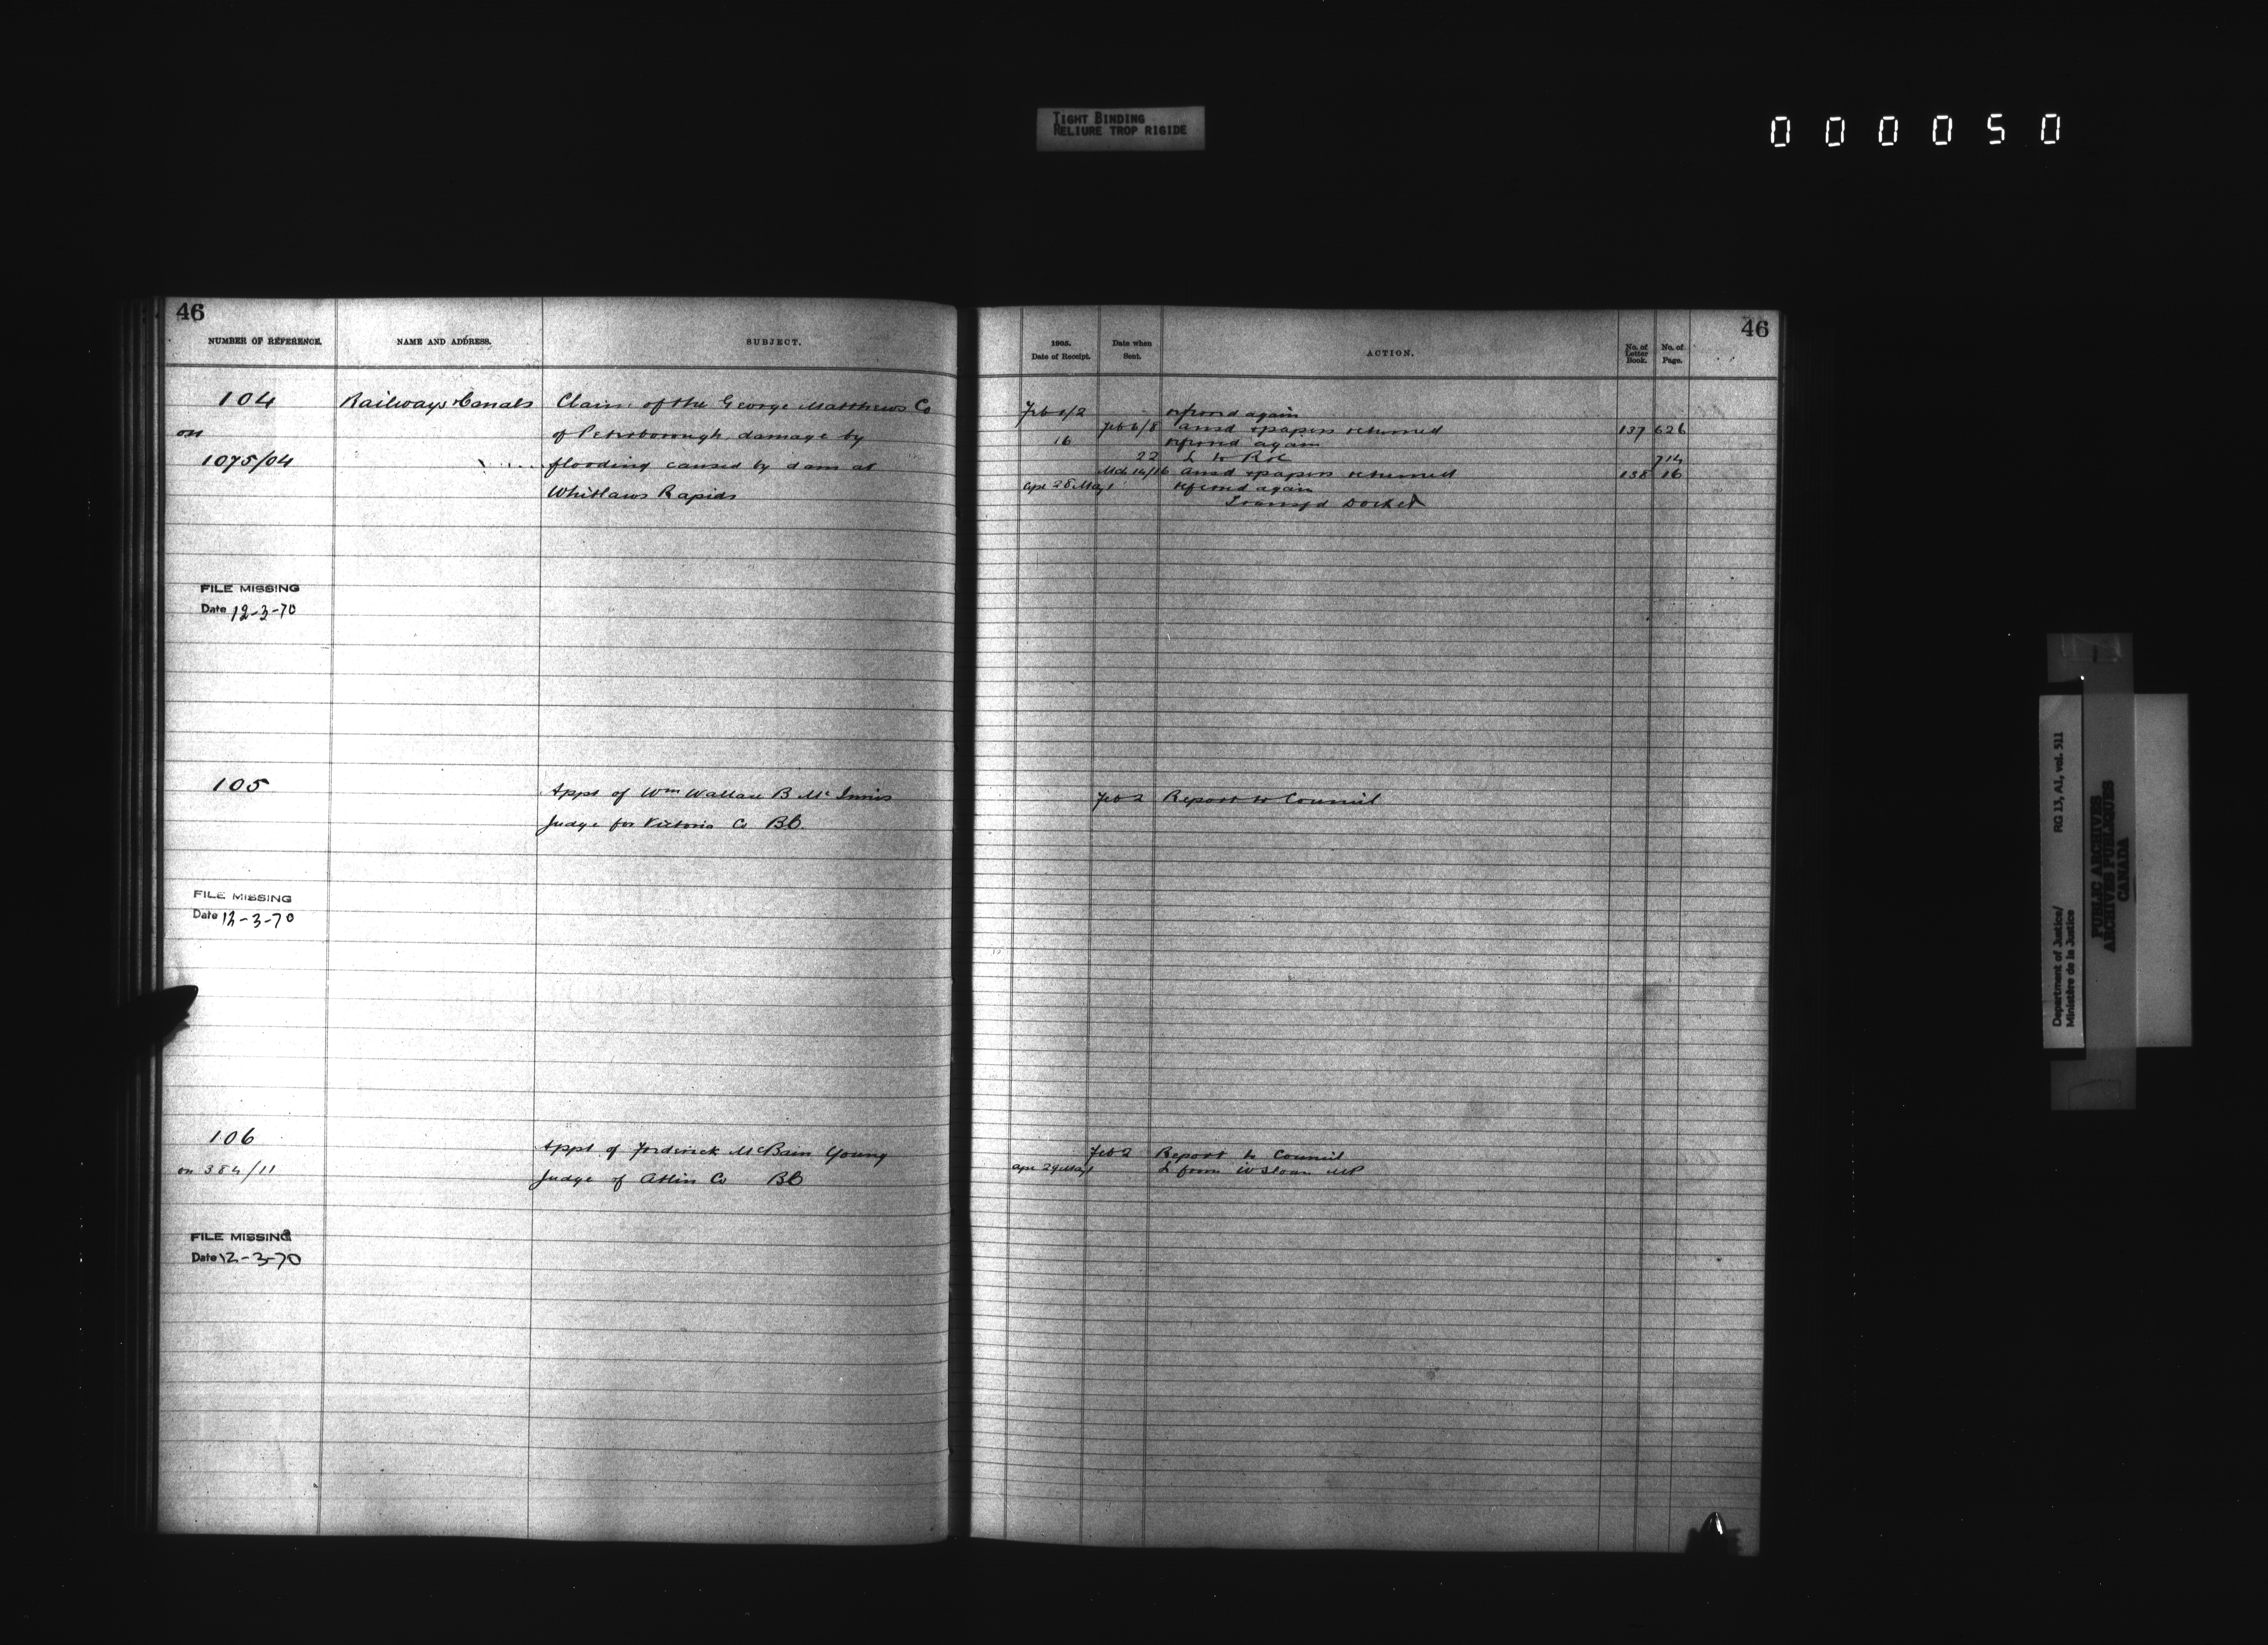 TIGHT BINDING
RELIURE TROP RIGIDE
000050
46
NUMBER OF REFERENCE.
NAME AND ADDRESS.
SUBJECT.
104
Railways & Canals
Claim of the George Matthews Co
on
of Peterborough, damage by
1075/04
flooding caused by dam at
Whitlaws Rapids
FILE MISSING
Date 12-3-70
105
Appt of Wm Wallace B McInnis
Judge for Victoria Co BC.
FILE MISSING
Date 12-3-70
106
Appt of Frederick McBain Young
on 384/11
Judge of Atlin Co BC
FILE MISSING
Date 12-3-70
46
1905.
Date of Receipt.
Date when
Sent.
ACTION.
No. of
Letter
Book.
No. of
Page.
Feb 1/2 referred again
Feb 6/8 ansd & papers returned 137 626
16 referred again
22 L to R&C 714
Mch 14/16 ansd & papers returned 138 16
Apr 28 May 1 referred again
Transf'd Docket
Feb 2 Report to Council
Feb 2 Report to Council
Apr 29 May 1 L from W Sloan MP
Department of Justice/
Ministère de la Justice
RG 13, A1, vol. 511
PUBLIC ARCHIVES
ARCHIVES PUBLIQUES
CANADA